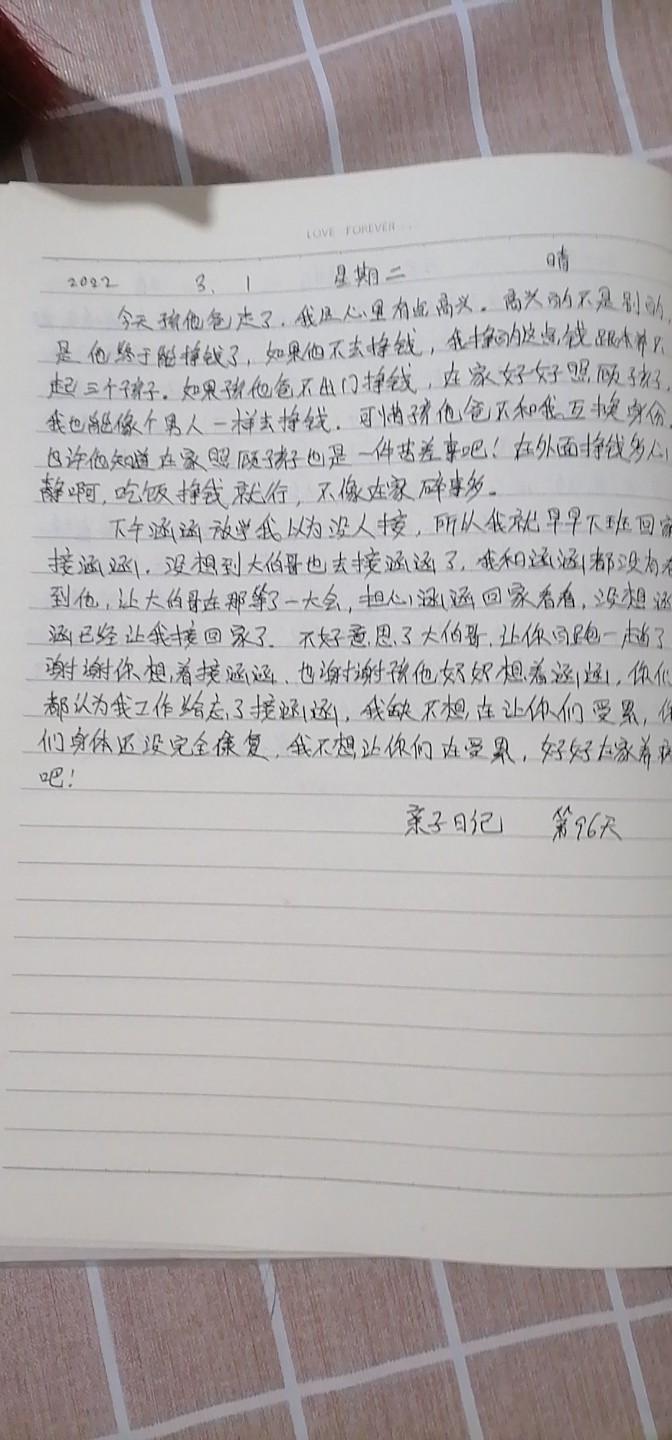 LOVE FOREVER...
2022 3. 1 星期二 晴
今天孩他爸走了，我这心里有点高兴。高兴的不是别的，
是他终于能挣钱了，如果他不去挣钱，我挣的这点钱跟本养不
起三个孩子。如果孩他爸不出门挣钱，在家好好照顾孩子，
我也能像个男人一样去挣钱。可惜孩他爸不和我互换身份，
也许他知道在家照顾孩子也是一件苦差事吧！在外面挣钱多心
静啊，吃饭挣钱就行，不像在家碎事多。
下午涵涵放学我以为没人接，所以我就早早下班回家
接涵涵。没想到大伯哥也去接涵涵了，我和涵涵都没有看
到他，让大伯哥在那等了一大会，担心涵涵回家看看，没想涵
涵已经让我接回家了。不好意思了大伯哥，让你问跑一趟了
谢谢你想着接涵涵，也谢谢孩他奶奶想着涵涵，你们
都认为我工作给忘了接涵涵，我缺不想在让你们受累，你
们身体还没完全康复，我不想让你们在受累，好好在家养病
吧！
亲子日记 第96天